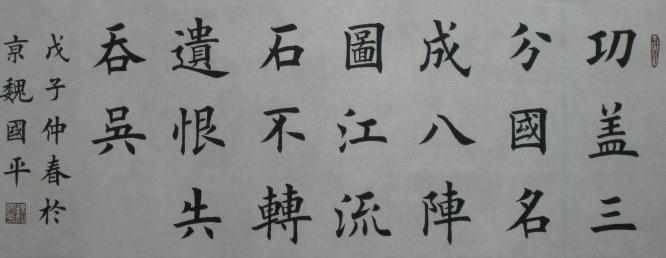 功盖三
分國名
成八陣
圖江流
石不轉
遺恨失
吞吳
戊子仲春於
京魏國平